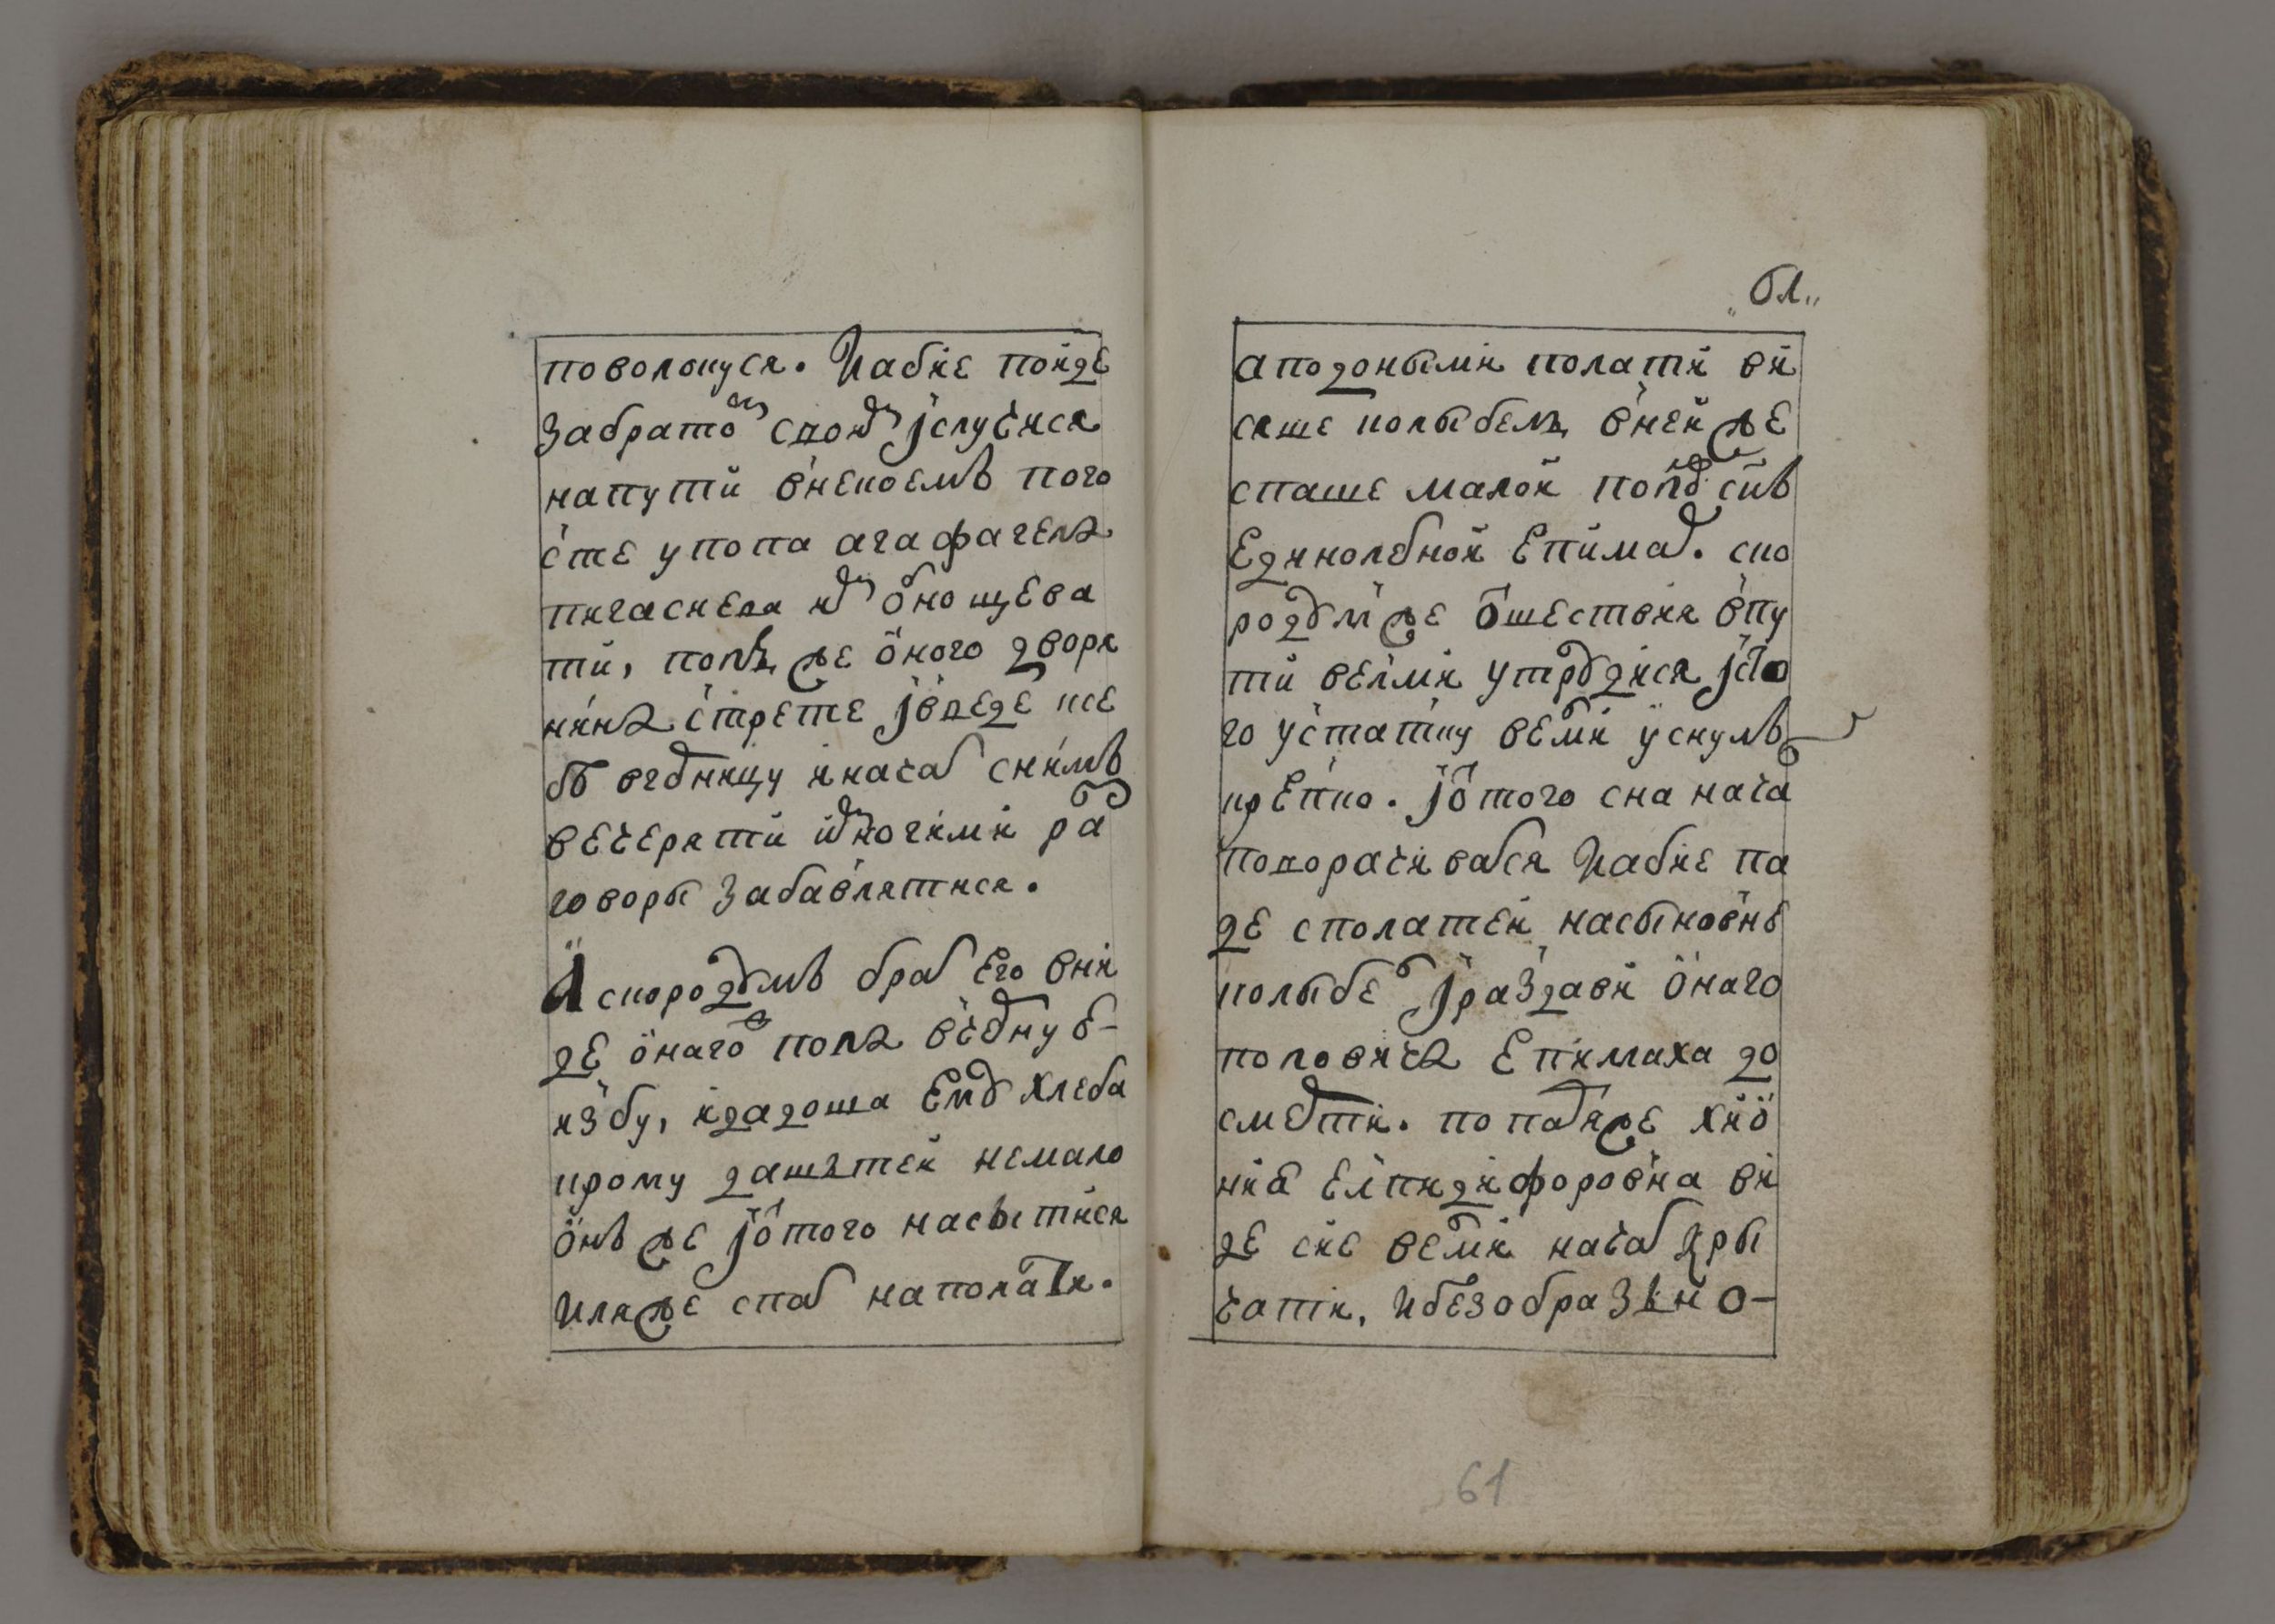 поволокуся. И абие поиде
за братомъ своимъ и случися
на пути в некоемъ пого
сте у попа агафагелъ
пигаснева им обнощева
ти, попъ же оного дворя
нинъ стрете и введе ис себ
ѣ в горницу и начал с нимъ
вечеряти и многими раз
говоры забавлятися.
А скороумъ брат его вни
де онаго попа в черную
избу, и дадоша ему хлеба
крому да штей немало
онъ же от того насытися
и ляже спат на полати.
„ѯл„
а под оными полати ви
сяше колыбель в ней же
спаше малои поповъ снъ
единолетнои епимах. ско
роум же от шествия в пу
ти велми утрудися и от то
го устатку велми уснулъ
крепко. и от того сна нача
поворачиватся и абие па
де с полатеи на сыновне
колыбел и раздави онаго
поповича епимаха до
смерти. попадия же хио
ниа елпидифоровна ви
де сие велми начал кры
чати, и безобразно
61